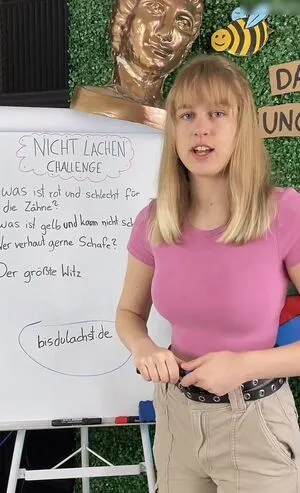 DA
UNG
NICHT LACHEN
CHALLENGE
Was ist rot und schlecht für
die Zähne?
was ist gelb und kann nicht sc
Wer verhaut gerne Schafe?
Der größte Witz
bisdulachst.de